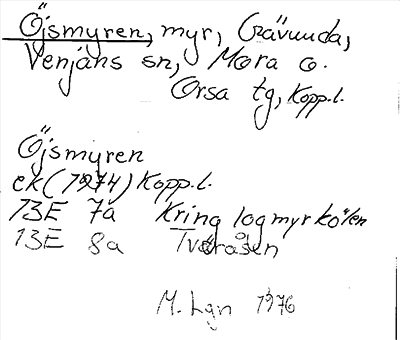 Öjsmyren, myr, Gävunda,
Venjans sn, Mora o.
Orsa tg, Kopp.l.
Öjsmyren
ek (1974) Kopp.l.
13E 7a Kringlogmyrkölen
13E 8a Tvåråsen
M. Lgn 1976